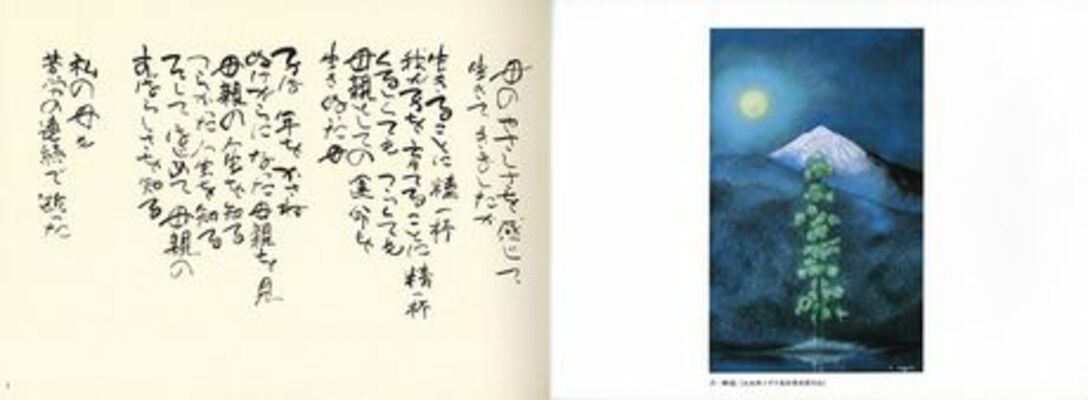 母のやさしさを感じて、
生きてきましたか
生きることに精一杯
我が子を育てることに精一杯
くるしくても つらくても
母親としての運命を
生きぬいた母
子は 年をかさね
ぬけがらになった母親を見
母親の人生を知る
つらかった人生を知る
そして 改めて 母親の
すばらしさを知る
私の母も
苦労の連続で逝った